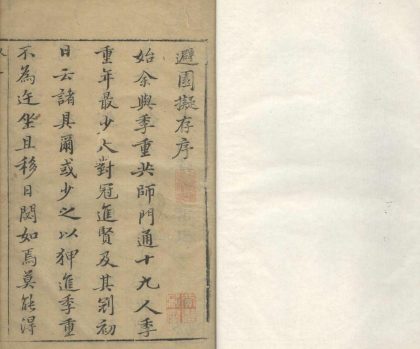 避園擬存序
始余與季重共師門通十九人季
重年最少大對冠進賢及其剖初
日云諸具爾或少之以狎進季重
不為迕坐且移日閎如焉莫能得